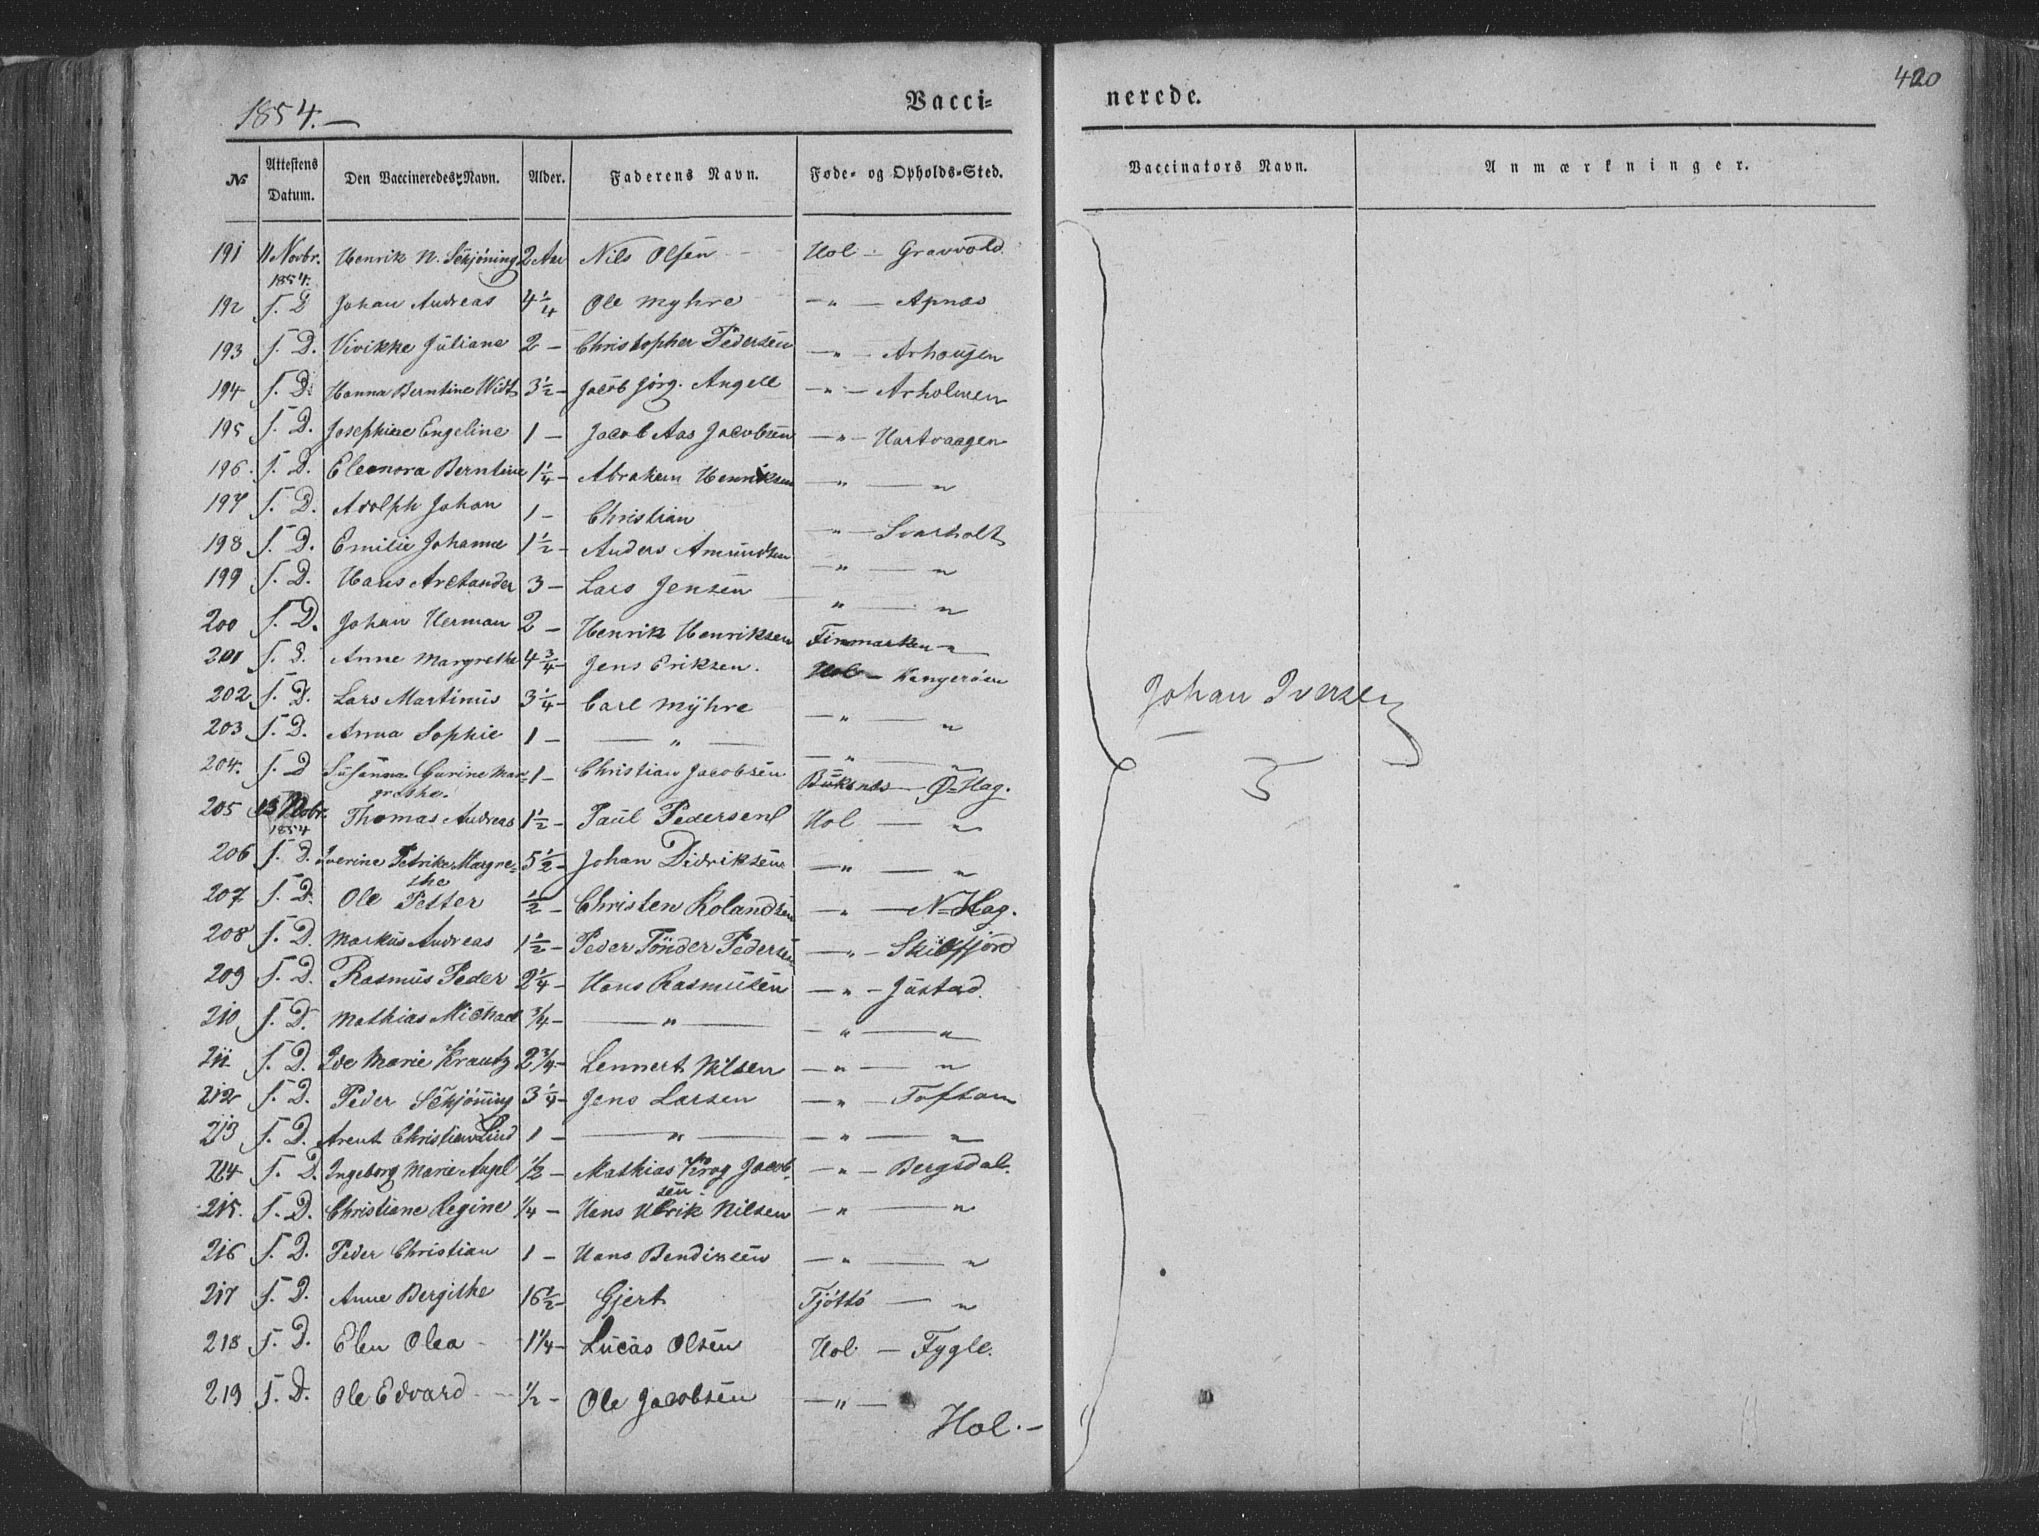 1854.— Vacci= nerede. 420
No Attestens Datum. Den Vaccineredes Navn. Alder. Faderens Navn. Føde= og Opholds=Sted. Vaccinators Navn. Anmærkninger.
191 11 Novbr. 1854. Henrik N. Schjöning 2 Aar Nils Olsen Hol — Gravvold
192 s. D Johan Andreas 4 1/4 Ole Myhre — " — Apnæs
193 s. D. Vivikke Juliane 2 — Christopher Pedersen — " — Arhougen
194 s. D. Hanna Berntine Widt 3 1/2 — Jacob Jörg. Angell — " — Arholmen
195 s. D. Josephine Engeline 1 — Jacob Aas Jacobsen — " — Hartvaagen
196. s. D. Eleonora Berntine 1 1/4 — Abraham Henriksen — " — "
197 s. D. Adolph Johan 1 — Christian " — Svarholt
198 s. D. Emilie Johanne 1 1/2 — Anders Amundsen — " — "
199 s. D. Hans Arctander 3 — Lars Jensen " — "
200 s. D. Johan Herman 2 — Henrik Henriksen Finmarken — "
201 s. D. Anne Margrethe 4 3/4 — Jens Eriksen. Hol — Kangerøen
202 s. D. Lars Martinus 3 1/4 — Carl Myhre — " — "
203 s. D. Anna Sophie 1 — — " — — " — "
204. s. D Susanna Gurine Mar= grethe. 1 — Christian Jacobsen Buksnæs — Ø=Hag.
205 13 Novbr. 1854 Thomas Andreas 1 1/2 — Paul Pedersen Hol — "
206 s. D. Iverine Petrike Margre= the 5 1/2 — Johan Didriksen — " — "
207 s. D. Ole Petter 1/2 — Christen Rolandsen — " — N=Hag.
208 s. D. Markus Andreas 1 1/2 — Peder Tönder Pedersen — " — Skulfjord
209 s. D. Rasmus Peder 2 1/4 — Hans Rasmusen — " — Justad.
210 s. D. Mathias Michael 3/4 — — " — — " — "
211 s. D. Ide Marie Krautz 2 3/4 — Lennert Nilsen — " — "
212 s. D. Peder Schjöning 3 1/4 — Jens Larsen — " — Toften
213 s. D. Arent Christian Lind 1 — — " — — " — "
214 s. D. Ingeborg Marie Angel 1/2 — Mathias Krog Jacob= sen. — " — Bergsdal.
215. s. D. Christiane Regine 1/4 — Hans Ulrik Nilsen — " — "
216 s. D. Peder Christian 1 — Hans Bendiksen — " — "
217 s. D. Anne Bergithe 16 1/2 — Gjert Tjöttö — "
218 s. D. Elen Olea 1 1/4 — Lucas Olsen Hol — Fygle.
219 s. D. Ole Edvard 1/2 — Ole Jacobsen — " —
Hol. —
Johan Iversen